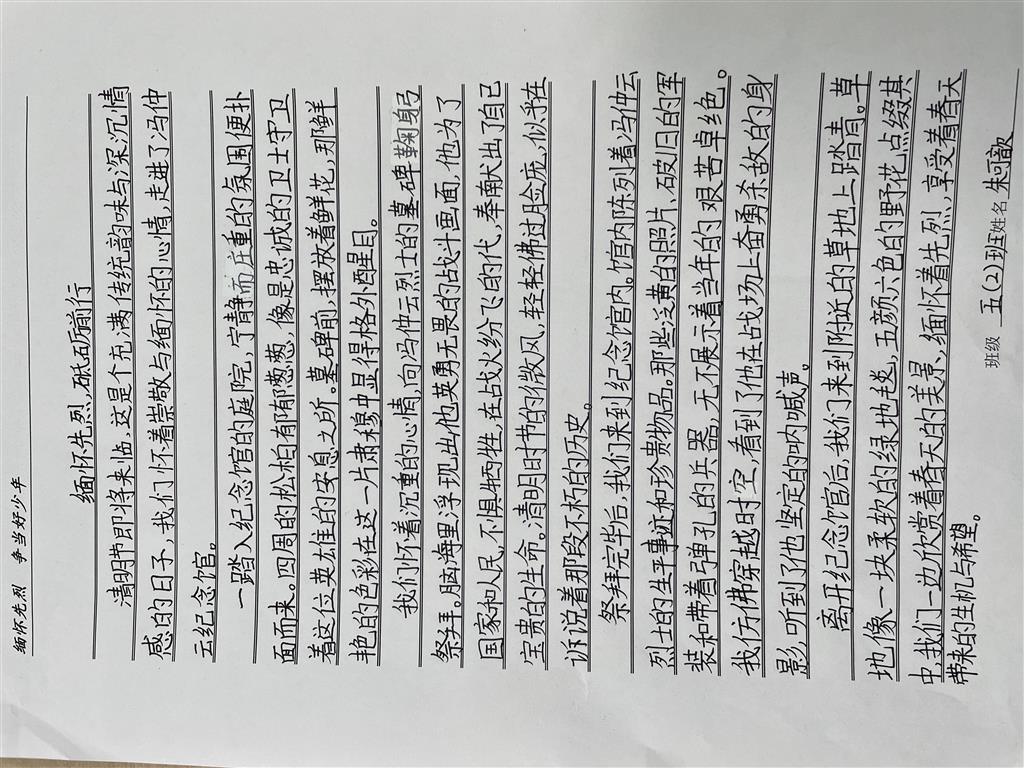 缅怀先烈 争当好少年
缅怀先烈,砥砺前行
清明节即将来临,这是个充满传统韵味与深沉情
感的日子,我们怀着崇敬与缅怀的心情,走进了冯仲
云纪念馆。
一踏入纪念馆的庭院,宁静而庄重的氛围便扑
面而来。四周的松柏郁郁葱葱,像是忠诚的卫士守卫
着这位英雄的安息之所,墓碑前,摆放着鲜花,那鲜
艳的色彩在这一片肃穆中显得格外醒目。
我们怀着沉重的心情,向冯仲云烈士的墓碑鞠躬
祭拜。脑海里浮现出他英勇无畏的战斗画面,他为了
国家和人民,不惧牺牲,在战火纷飞的年代,奉献出了自己
宝贵的生命。清明时节的微风,轻轻佛过脸庞,似乎在
诉说着那段不朽的历史。
祭拜完毕后,我们来到纪念馆内。馆内陈列着冯仲云
烈士的生平事迹和珍贵物品。那些泛黄的照片、破旧的军
装和带着弹孔的兵器,无不展示着当年的艰苦卓绝。
我仿佛穿越时空,看到了他在战场上奋勇杀敌的身
影,听到了他坚定的呐喊声。
离开纪念馆后,我们来到附近的草地上踏青。草
地像一块柔软的绿地毯,五颜六色的野花点缀其
中,我们一边欣赏着春天的美景,缅怀着先烈,享受着春天
带来的生机与希望。
班级 五(2)班姓名 朱可歆